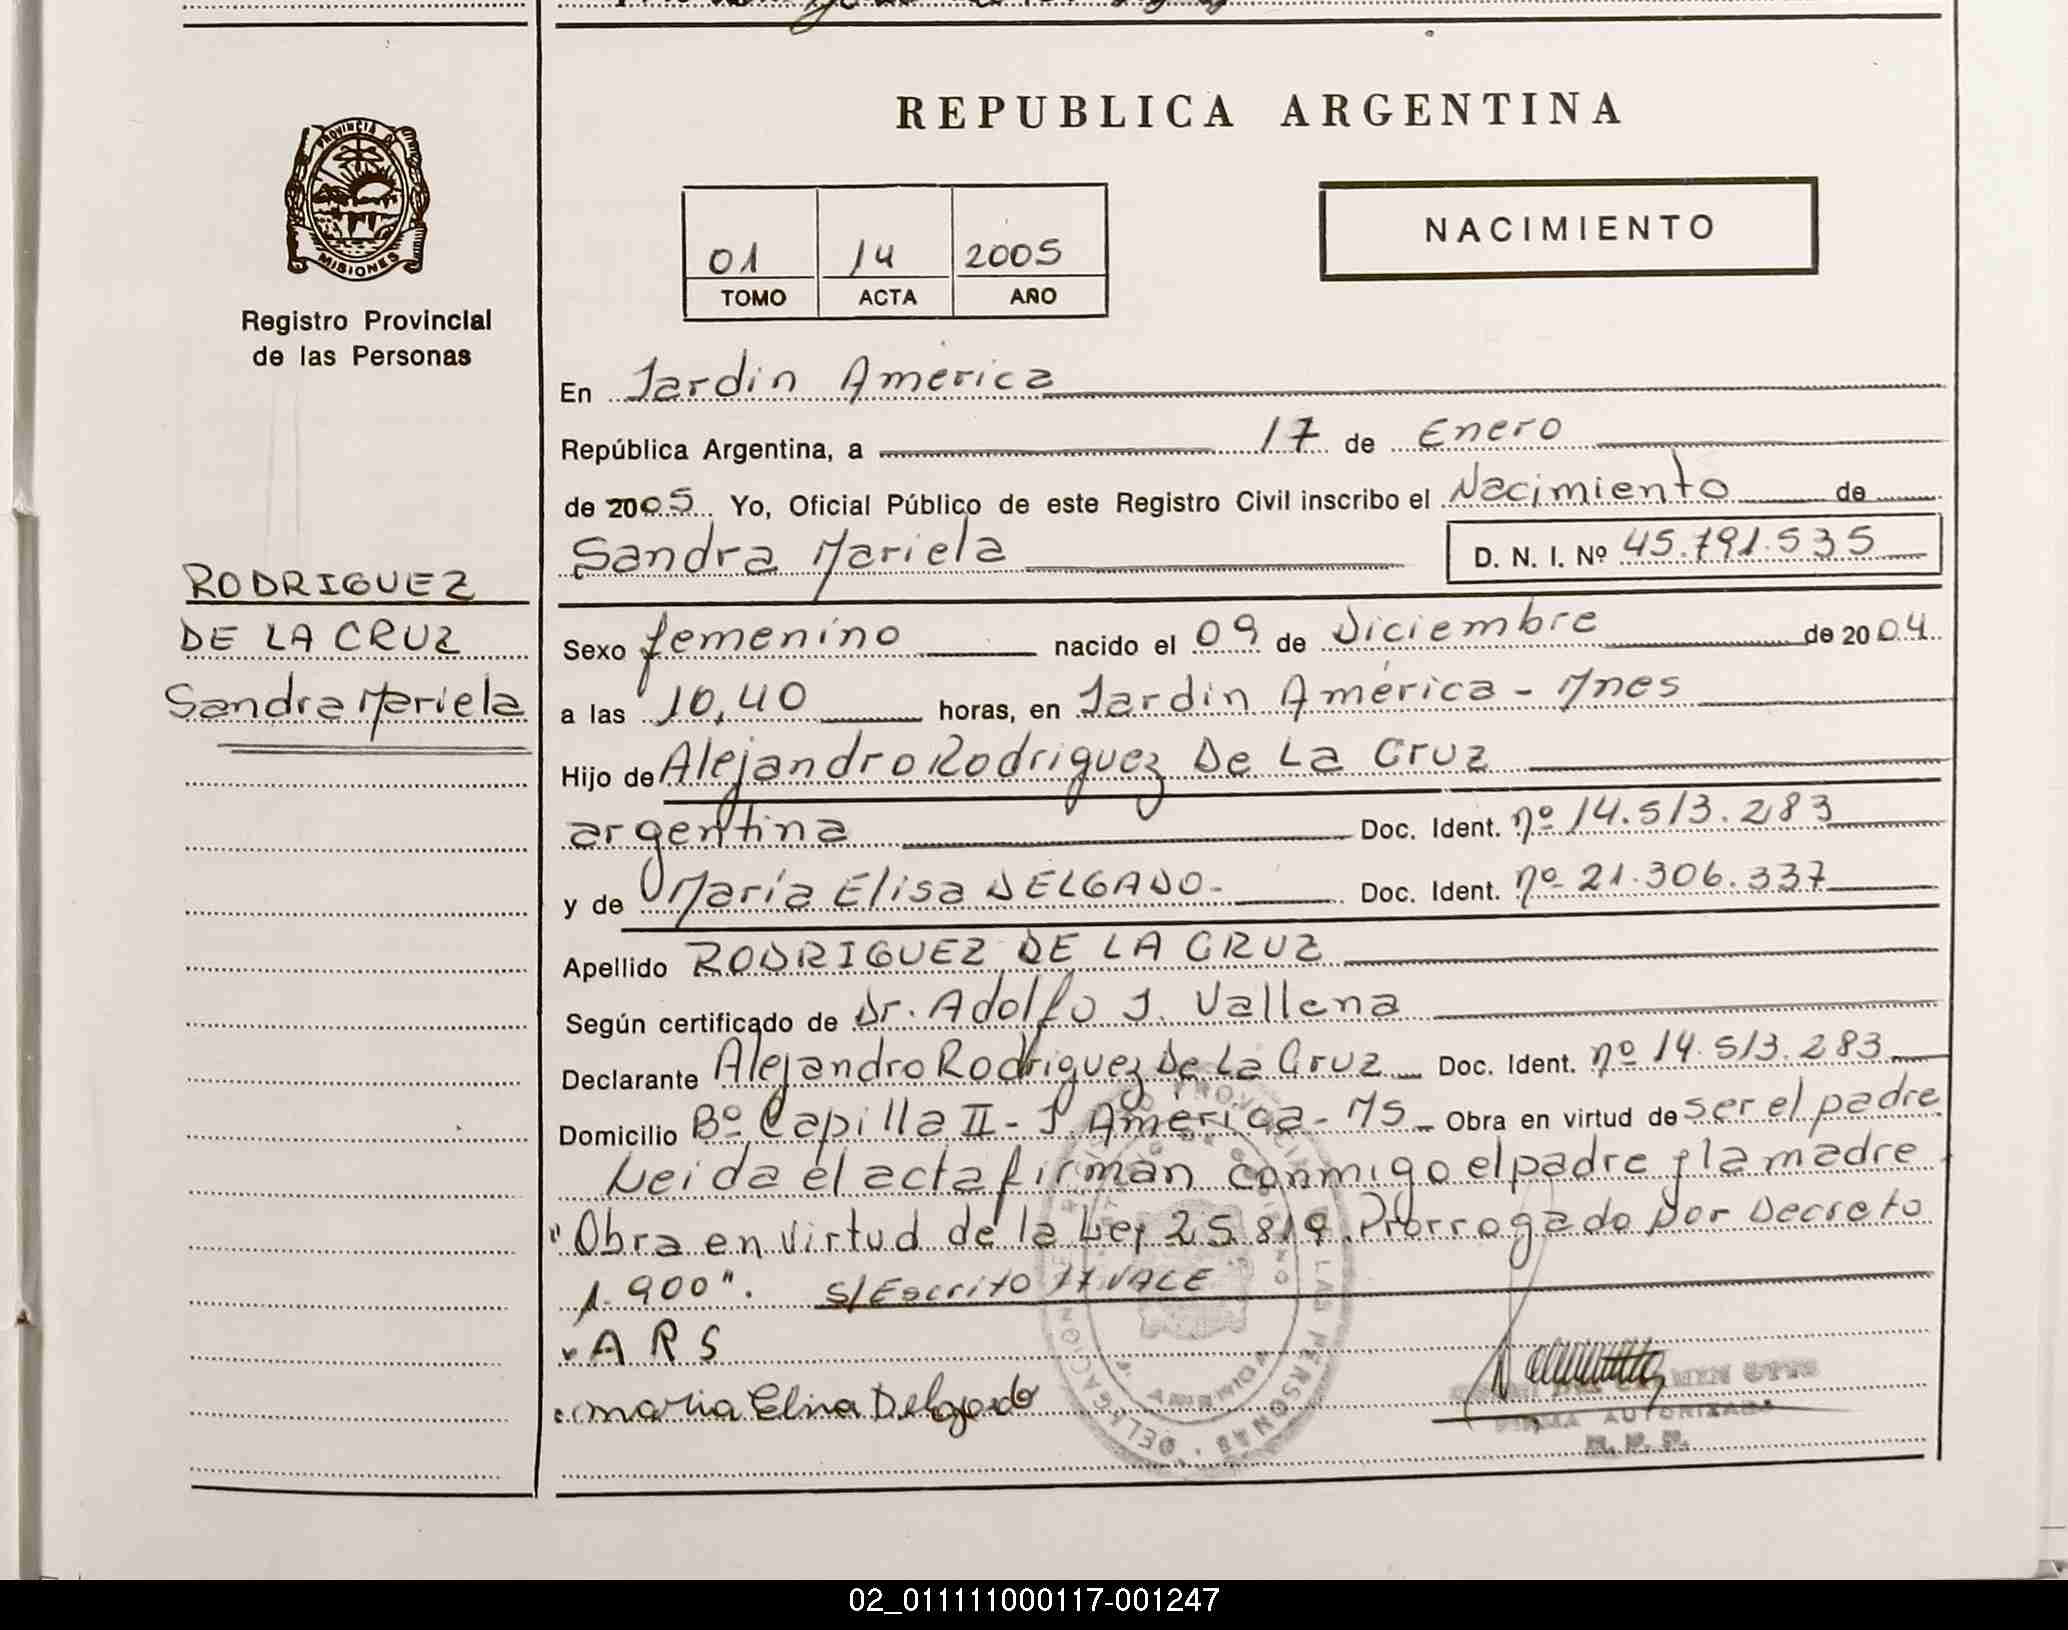 REPUBLICA ARGENTINA
PROVINCIA DE
MISIONES
Registro Provincial
de las Personas
01 14 2005
TOMO ACTA AÑO
NACIMIENTO
En Jardin America
República Argentina, a 17 de Enero
de 2005 Yo, Oficial Público de este Registro Civil inscribo el Nacimiento de
Sandra Mariela D. N. I. Nº 45.791.535
RODRIGUEZ
DE LA CRUZ
Sandra Mariela
Sexo femenino nacido el 09 de Diciembre de 2004
a las 10,40 horas, en Jardin América - Mnes
Hijo de Alejandro Rodriguez De La Cruz
argentina Doc. Ident. nº 14.513.283
y de María Elisa DELGADO.- Doc. Ident. nº 21.306.337
Apellido RODRIGUEZ DE LA CRUZ
Según certificado de Dr. Adolfo J. Vallena
Declarante Alejandro Rodriguez De La Cruz Doc. Ident. nº 14.513.283
Domicilio Bº Capilla II - J. América - MS Obra en virtud de ser el padre
Leida el acta firman conmigo el padre y la madre
"Obra en virtud de la Ley 25.819. Prorrogado por Decreto
1.900". S/Escrito 17 VALE
A R S
maria Elisa Delgado
FIRMA AUTORIZADA
R. P. P.
02_011111000117-001247